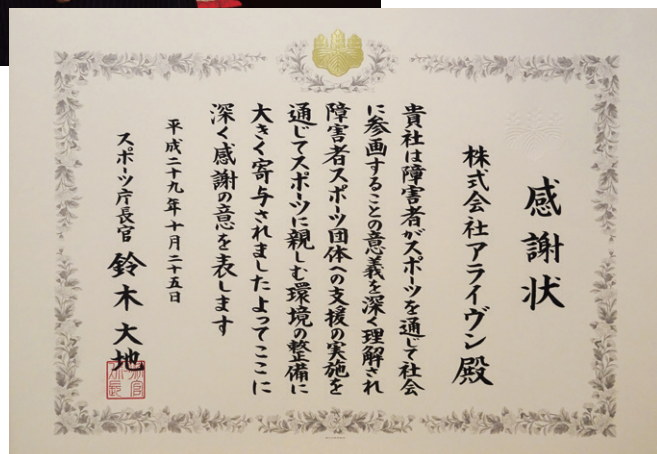 感謝状
株式会社アライヴン殿
貴社は障害者がスポーツを通じて社会
に参画することの意義を深く理解され
障害者スポーツ団体への支援の実施を
通じてスポーツに親しむ環境の整備に
大きく寄与されましたよってここに
深く感謝の意を表します
平成二十九年十月二十五日
スポーツ庁長官 鈴木大地